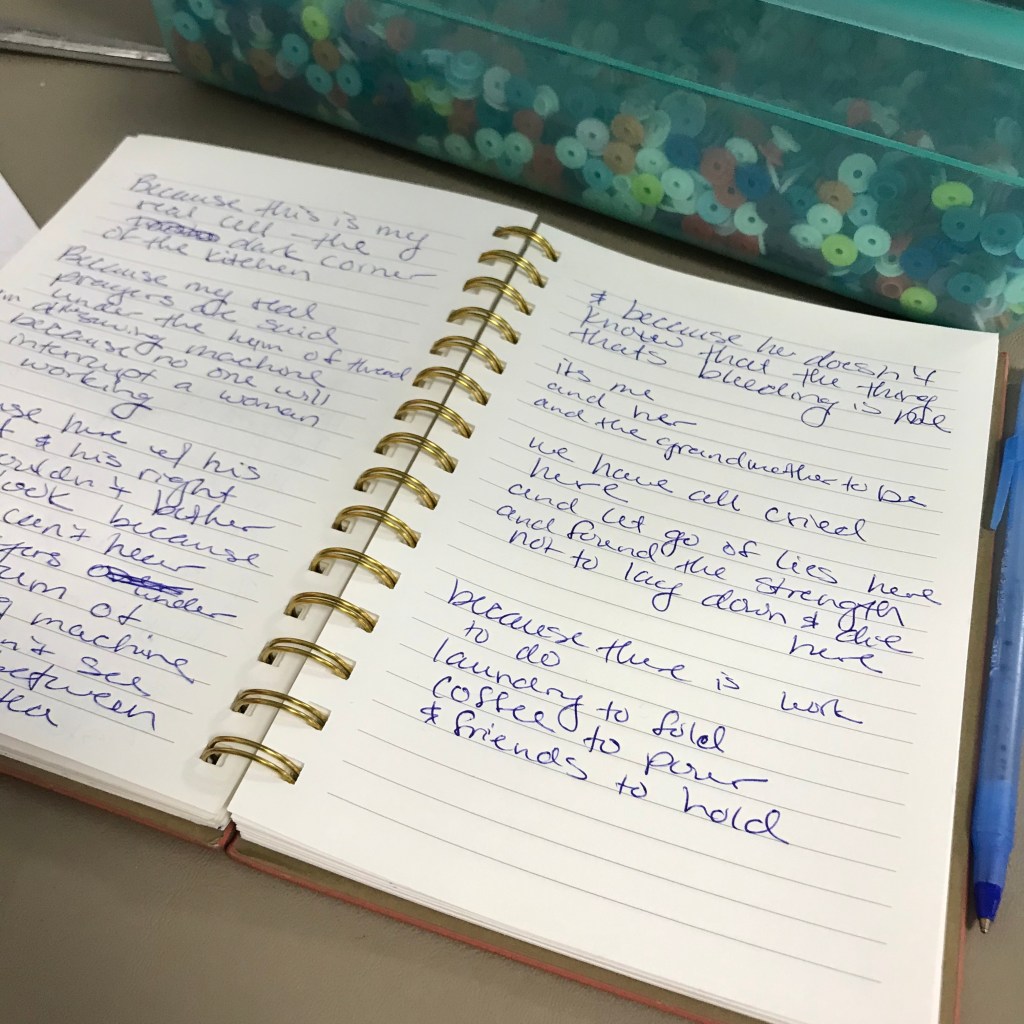 Because this is my
real cell - the
dark corner
of the kitchen
Because my real
prayers are said
under the hum of thread
in a sewing machine
because no one will
interrupt a woman
working
here w/ his
& his right
bother
look because
can't hear
under
hum of
machine
see
between
& because he doesn't
know that the thing
thats bleeding is me
its me
and her
and the grandmother to be
we have all cried
here
and let go of lies here
and found the strength
not to lay down & die
here
because there is work
to do
laundry to fold
coffee to pour
& friends to hold